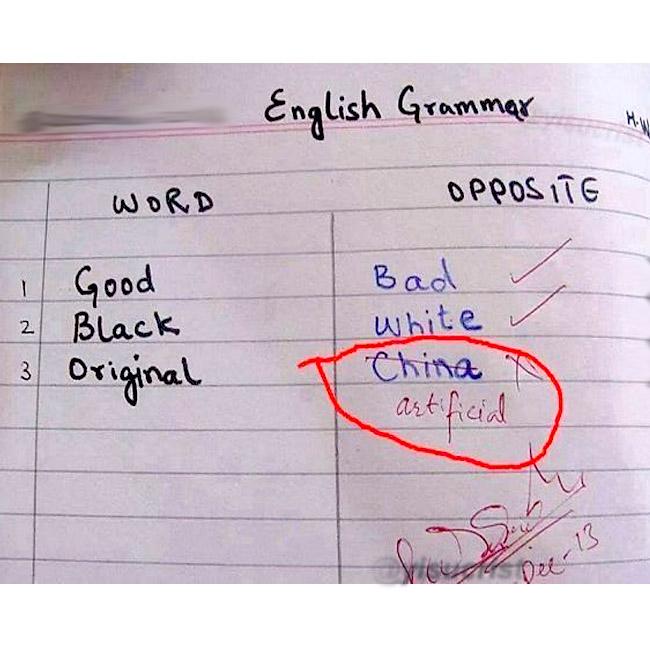 English Grammar
H.W
WORD OPPOSITE
1 Good Bad
2 Black White
3 Original China
artificial
Dec-13